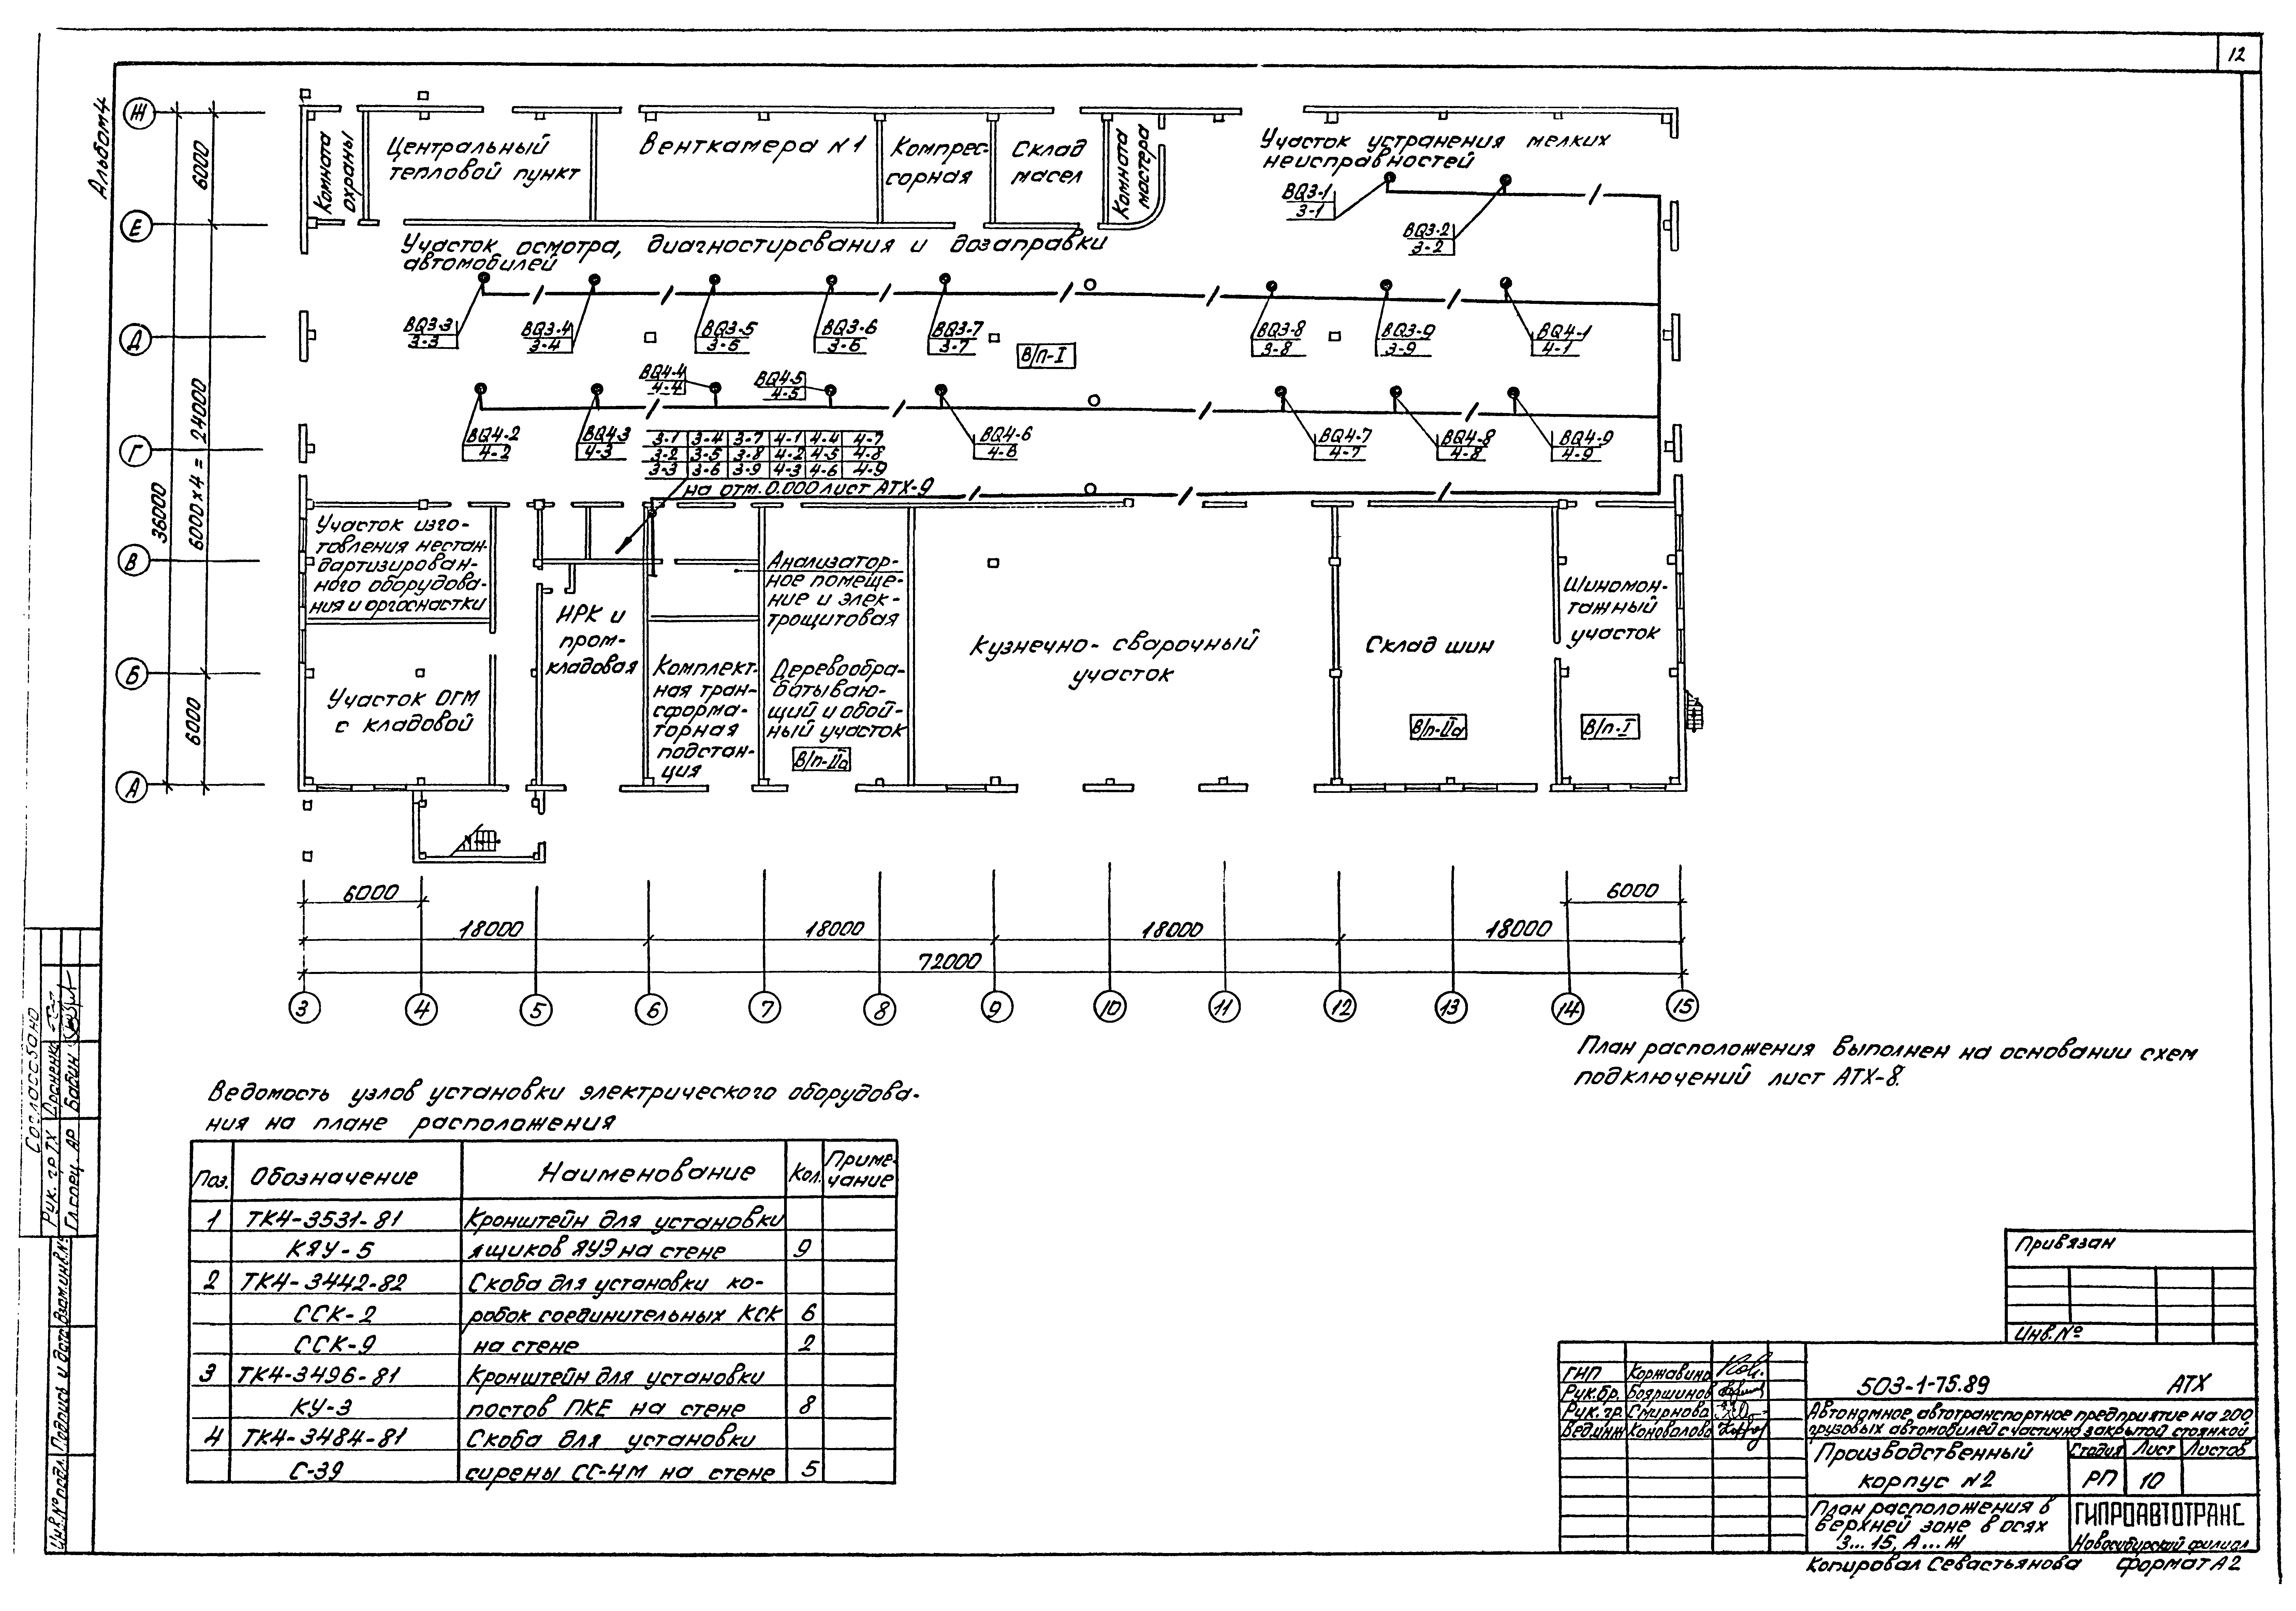 12
Альбом 4
Ж
Е
Д
Г
В
Б
А
6000
6000х4 = 24000
36000
6000
Комната
охраны
Центральный
тепловой пункт
Венткамера N1
Компрес-
сорная
Склад
масел
Комната
мастера
Участок устранения мелких
неисправностей
BQ3-1
3-1
BQ3-2
3-2
Участок осмотра, диагностирования и дозаправки
автомобилей
BQ3-3
3-3
BQ3-4
3-4
BQ3-5
3-5
BQ3-6
3-6
BQ3-7
3-7
BQ3-8
3-8
BQ3-9
3-9
BQ4-1
4-1
В/п-I
BQ4-4
4-4
BQ4-5
4-5
BQ4-2
4-2
BQ4-3
4-3
BQ4-6
4-6
BQ4-7
4-7
BQ4-8
4-8
BQ4-9
4-9
3-1 3-4 3-7 4-1 4-4 4-7
3-2 3-5 3-8 4-2 4-5 4-8
3-3 3-6 3-9 4-3 4-6 4-9
на отм. 0.000 лист АТХ-9
Участок изго-
товления нестан-
дартизирован-
ного оборудова-
ния и оргоснастки
Участок ОГМ
с кладовой
ИРК и
пром-
кладовая
Комплект-
ная тран-
сформа-
торная
подстан-
ция
Анализатор-
ное помеще-
ние и элек-
трощитовая
Деревообра-
батываю-
щий и обой-
ный участок
В/п-IIа
Кузнечно-сварочный
участок
Склад шин
В/п-IIа
Шиномон-
тажный
участок
В/п-I
6000
6000
18000
18000
18000
18000
72000
3 4 5 6 7 8 9 10 11 12 13 14 15
План расположения выполнен на основании схем
подключений лист АТХ-8.
Ведомость узлов установки электрического оборудова-
ния на плане расположения
Поз. Обозначение Наименование Кол. Приме-
чание
1 ТК4-3531-81 Кронштейн для установки
КЯУ-5 ящиков ЯУЭ на стене 9
2 ТК4-3442-82 Скоба для установки ко-
ССК-2 робок соединительных КСК 6
ССК-9 на стене 2
3 ТК4-3496-81 Кронштейн для установки
КУ-3 постов ПКЕ на стене 8
4 ТК4-3484-81 Скоба для установки
С-39 сирены СС-4М на стене 5
Согласовано
Рук. гр ТХ
Гл. спец. АР Бабин
Взам.инв.№
Подпись и дата
Инв.№ подл.
Привязан
Инв.№
ГИП Коржавина
Рук.бр. Бояршинов
Рук. гр. Смирнова
Вед.инж Коновалова
503-1-75.89 АТХ
Автономное автотранспортное предприятие на 200
грузовых автомобилей с частично закрытой стоянкой
Производственный
корпус N2
Стадия Лист Листов
РП 10
План расположения в
верхней зоне в осях
3...15, А...Ж
ГИПРОАВТОТРАНС
Новосибирский филиал
Копировал Севастьянова Формат А2